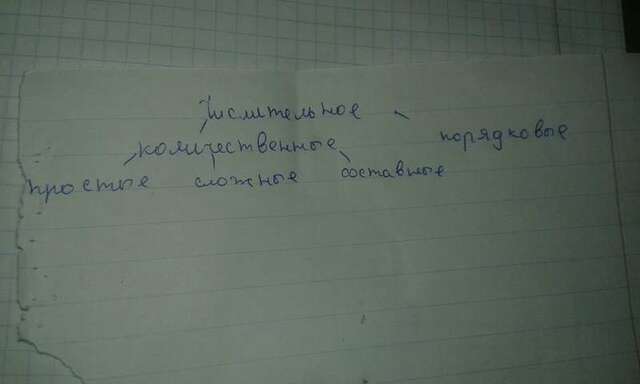 Числительное
количественные порядковые
простые сложные составные